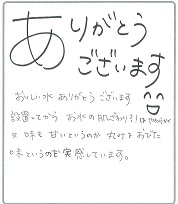 ありがとう
ございます
おいしい水 ありがとうございます
設置してから お水の肌ざわり?!は やわらかく
味も 甘いというのか 丸みをおびた
味というのを実感しています。